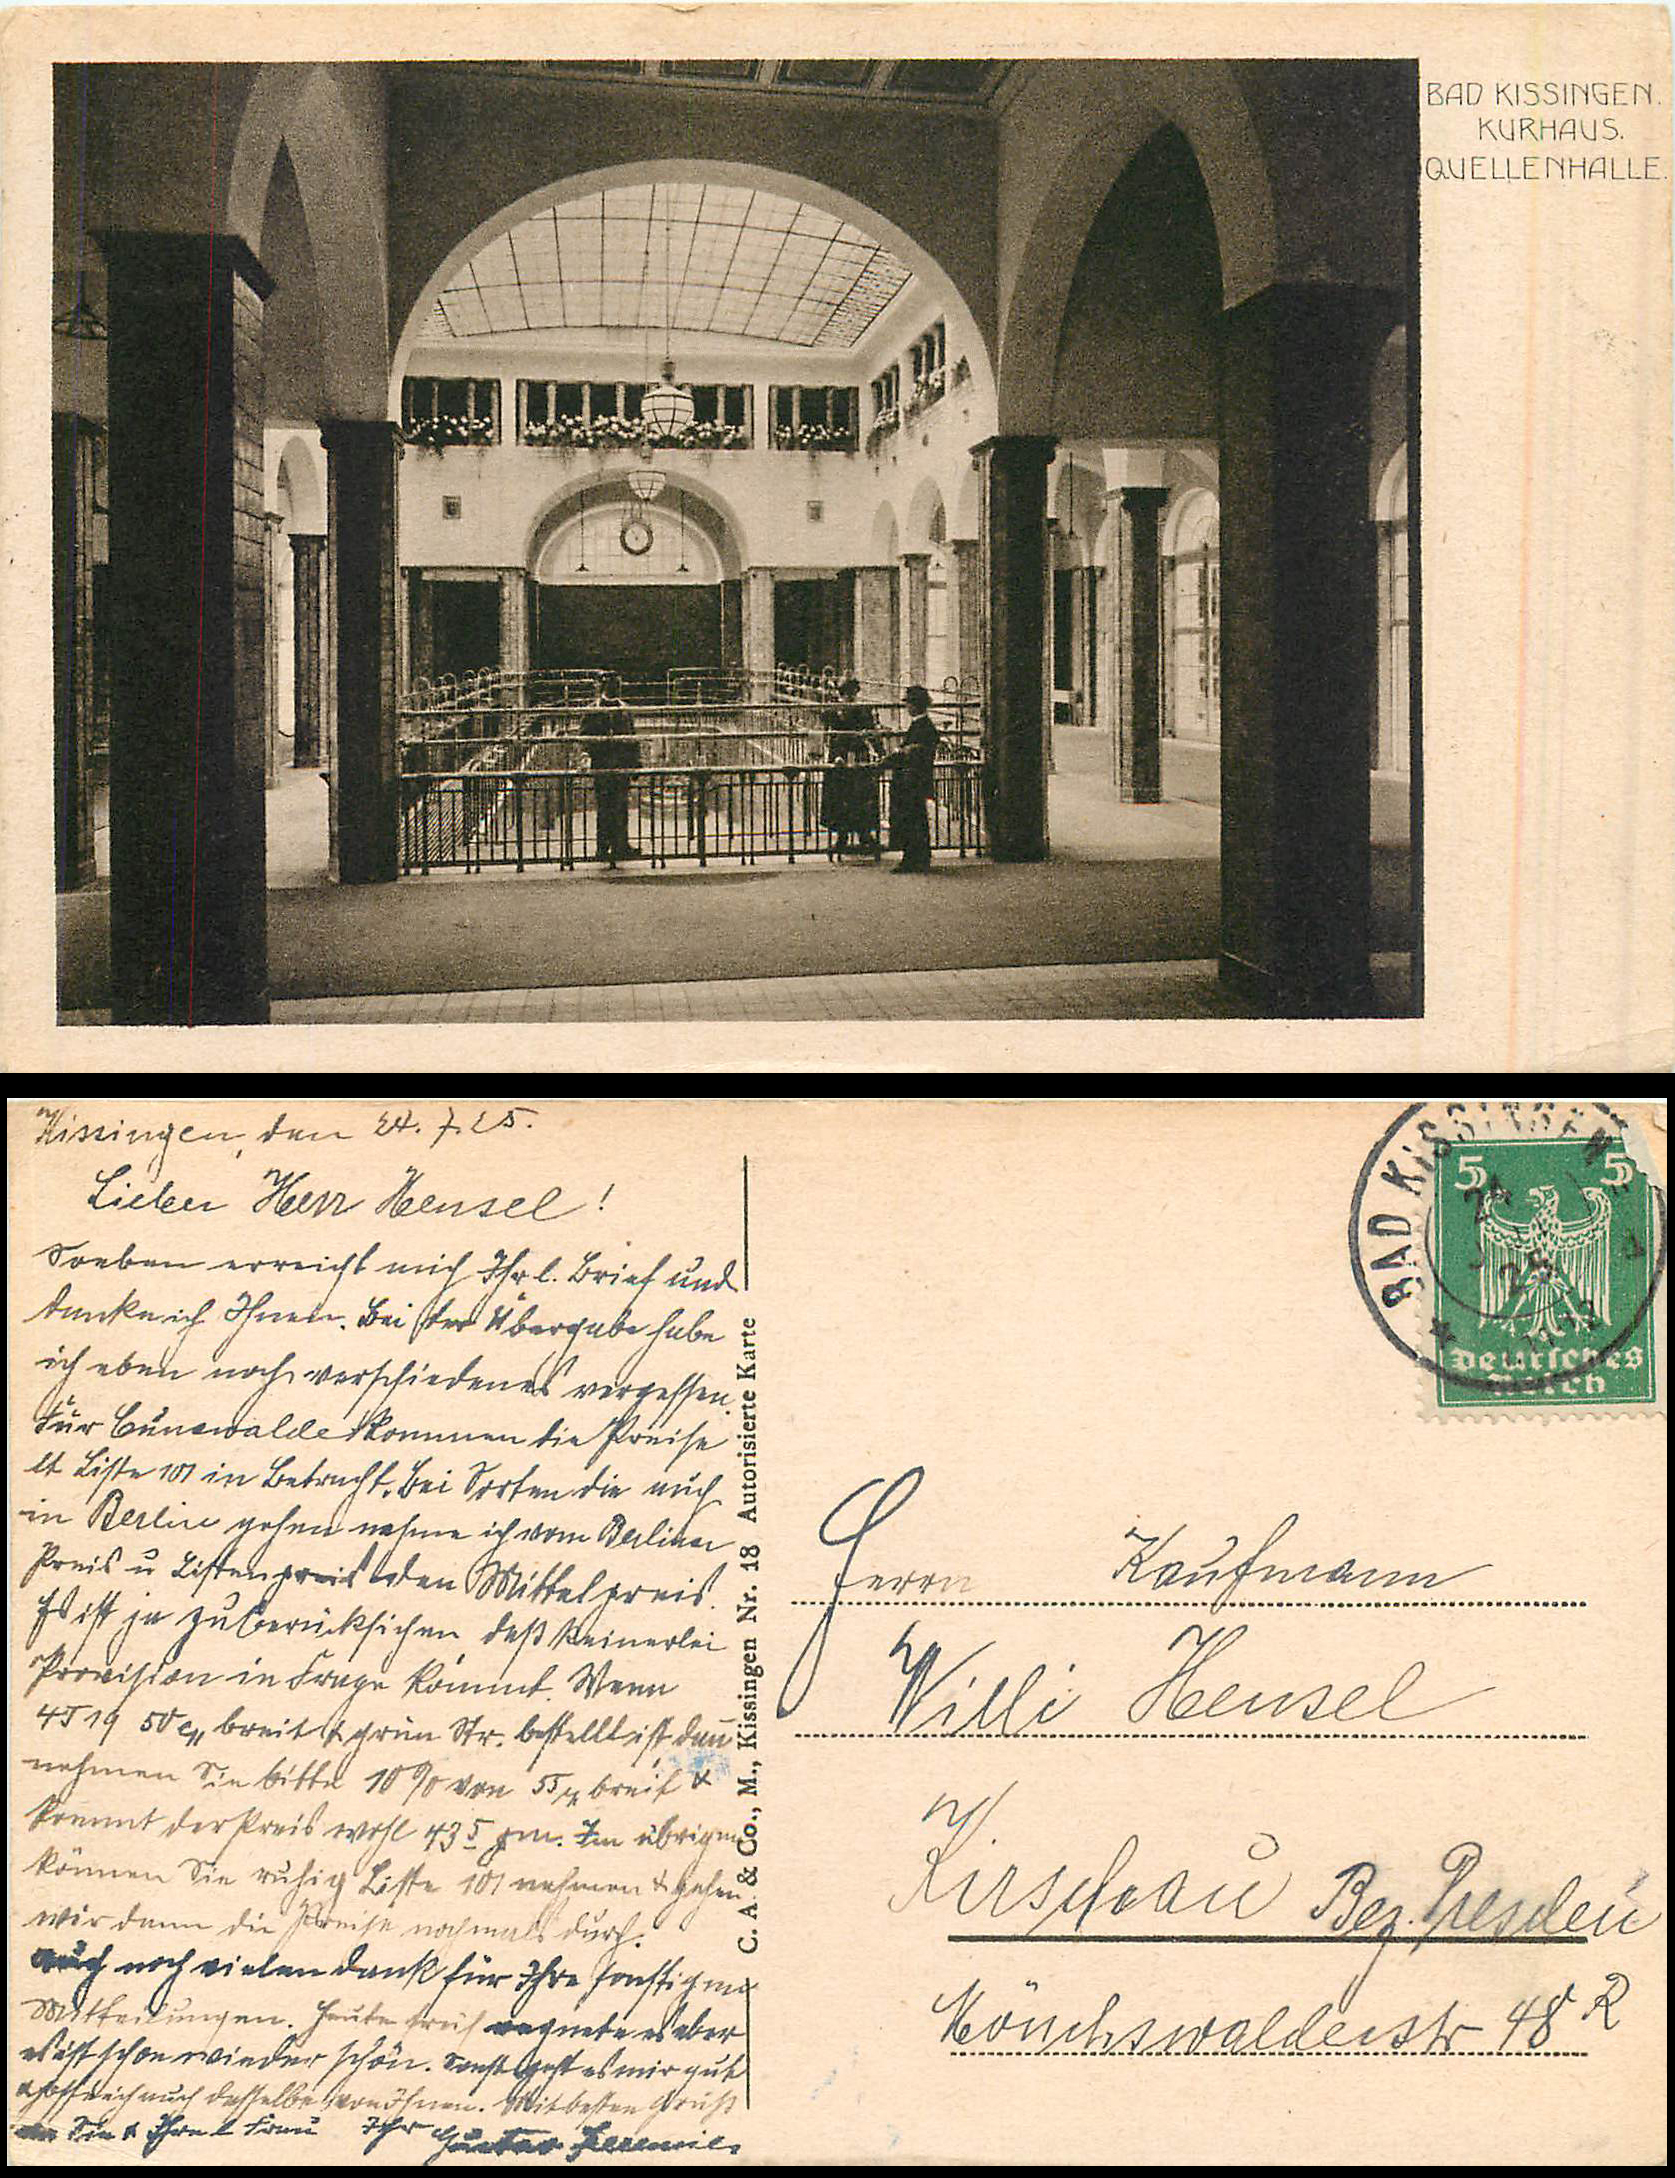 BAD KISSINGEN.
KURHAUS.
QUELLENHALLE.
Kissingen, den 24. 7. 25.
Lieber Herr Hensel!
Soeben erreicht mich Ihr l. Brief und
danke ich Ihnen. Bei der Übergabe habe
ich eben noch verschiedenes vergessen.
Für Cunewalde kommen die Preise
lt Liste 101 in Betracht. Bei Sorten die auch
in Berlin gehen nehme ich vom Berliner
Preis u Listenpreis den Mittelpreis.
Es ist ja zu berücksichen daß keinerlei
Provision in Frage kommt. Wenn
4519 50 breit & grün Str. bestellt ist dann
nehmen Sie bitte 10% von 55 breit &
kommt der Preis wohl 435 Im übrigen
können Sie ruhig Liste 101 nehmen & gehen
wir dann die Preise nochmals durch.
Auch noch vielen Dank für Ihre sonstigen
Mitteilungen. Heute früh regnete es aber
es ist schon wieder schön. Sonst geht es mir gut
& hoffe ich auch dasselbe von Ihnen. Mit besten Gruß
an Sie & Ihre l Frau Ihr Gustav
C. A. & Co., M., Kissingen Nr. 18 Autorisierte Karte
BAD KISSINGEN
24
25
5 5
Deutsches
Reich
Herrn Kaufmann
Willi Hensel
Kirschau Bez. Dresden
Mönchswalderstr 48 R